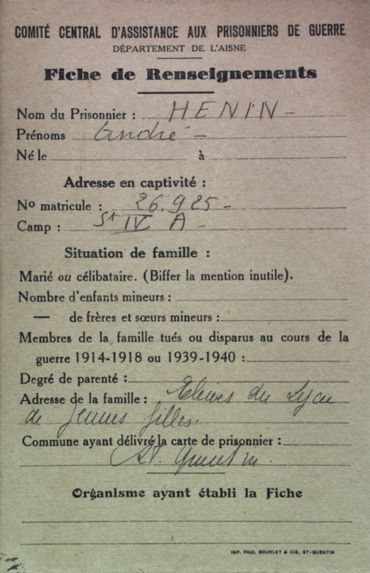 COMITÉ CENTRAL D'ASSISTANCE AUX PRISONNIERS DE GUERRE
DÉPARTEMENT DE L'AISNE
Fiche de Renseignements
Nom du Prisonnier : HENIN -
Prénoms André -
Né le à
Adresse en captivité :
Nº matricule : 26.925 -
Camp : St IV A -
Situation de famille :
Marié ou célibataire. (Biffer la mention inutile).
Nombre d'enfants mineurs :
— de frères et sœurs mineurs :
Membres de la famille tués ou disparus au cours de la
guerre 1914-1918 ou 1939-1940 :
Degré de parenté :
Adresse de la famille : Elèves du Lycée
de Jeunes filles.
Commune ayant délivré la carte de prisonnier :
St. Quentin
Organisme ayant établi la Fiche
IMP. PAUL BOURLET & CIE, ST-QUENTIN